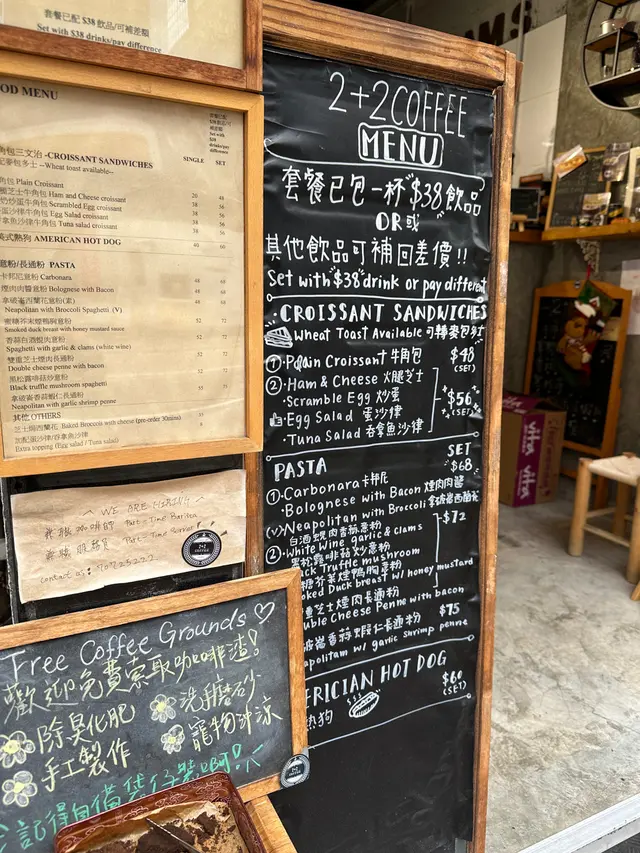 套餐已配 $38 飲品/可補差額
Set with $38 drinks/pay difference
OD MENU
套餐已配
$38 飲品/可
補差額
Set with
$38
drinks/pay
difference
角包三文治 -CROISSANT SANDWICHES SINGLE SET
--Wheat toast available--
角包 Plain Croissant
芝士牛角包 Ham and Cheese croissant
炒蛋牛角包 Scrambled Egg croissant
蛋沙律牛角包 Egg Salad croissant
魚沙律牛角包 Tuna salad croissant
式熱狗 AMERICAN HOT DOG 40 60
意粉/長通粉 PASTA
卡邦尼意粉 Carbonara 48 68
煙肉肉醬意粉 Bolognese with Bacon 48 68
拿破崙西蘭花意粉(素)
Neapolitan with Broccoli Spaghetti (V)
蜜糖芥末煙鴨胸意粉
Smoked duck breast with honey mustard sauce 52 72
香蒜白酒蜆意粉
Spaghetti with garlic & clams (white wine) 52 72
雙重芝士煙肉長通粉
Double cheese penne with bacon 52 72
黑松露蘑菇炒意粉
Black truffle mushroom spaghetti 52 72
拿破崙香蒜蝦仁長通粉
Neapolitan with garlic shrimp penne 55 75
其他 OTHERS
芝士焗西蘭花 Baked Broccoli with cheese (pre-order 30mins)
加配蛋沙律/吞拿魚沙律
Extra topping (Egg salad / Tuna salad)
WE ARE HIRING
Part-Time Barista
Part-Time Server
contact us:
2+2 COFFEE
MENU
套餐已包一杯 $38 飲品
OR 或
其他飲品可補回差價!!
Set with $38 drink or pay different
·CROISSANT SANDWICHES
Wheat Toast Available 可轉麥包多士
①·Plain Croissant 牛角包 $48 (SET)
②·Ham & Cheese 火腿芝士
·Scramble Egg 炒蛋 $56 (SET)
·Egg Salad 蛋沙律
·Tuna Salad 吞拿魚沙律
PASTA SET
①·Carbonara 卡邦尼 $68
·Bolognese with Bacon 煙肉肉醬
(V)·Neapolitan with Broccoli 拿破崙西蘭花
白酒蜆肉香蒜意粉 $72
②·White Wine garlic & clams
黑松露啡菇炒意粉
ack Truffle mushroom
糖芥茉煙鴨胸意粉
oked Duck breast w/ honey mustard
重芝士煙肉長通粉
uble Cheese Penne with bacon
破崙香蒜蝦仁卡通粉 $75
apolitan w/ garlic shrimp penne
ERICIAN HOT DOG $60
熱狗 (SET)
Free Coffee Grounds ♡
歡迎免費索取咖啡渣!
除臭化肥
洗擦磨砂
手工製作
寵物
記得自備